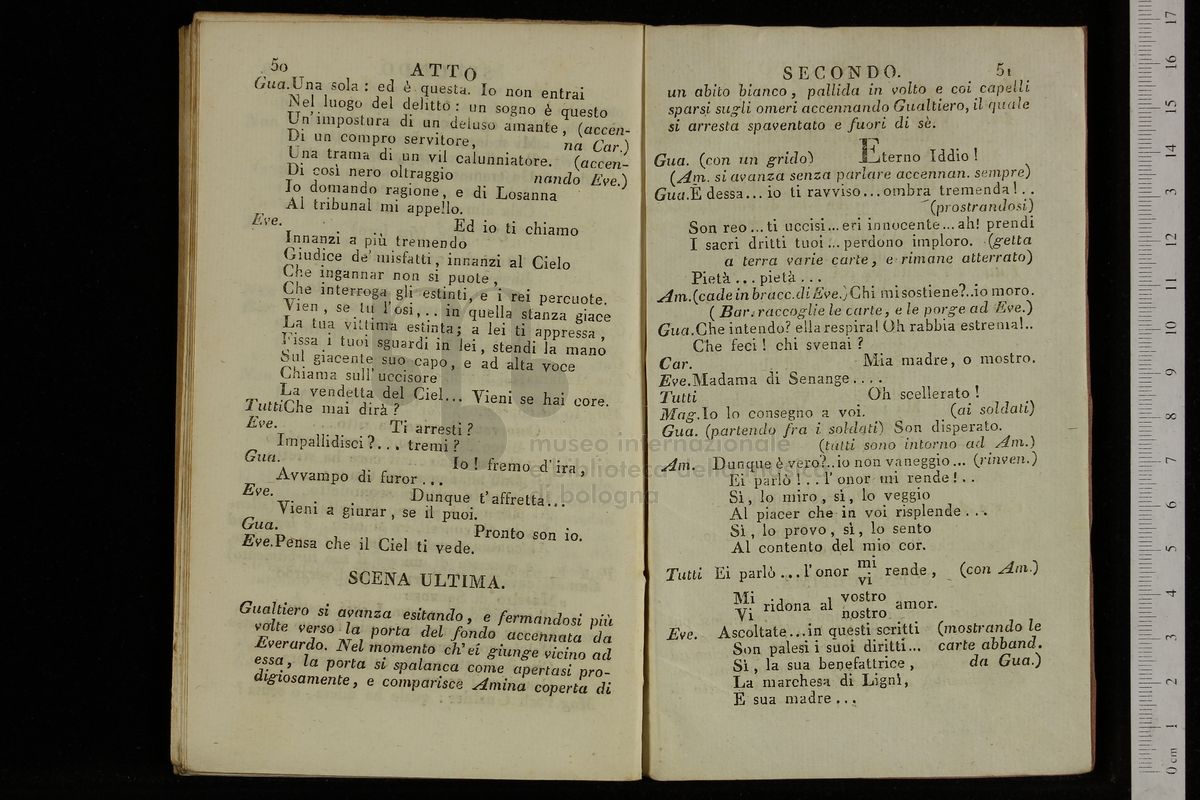 50 ATTO
Gua.Una sola : ed è questa. Io non entrai
Nel luogo del delitto : un sogno è questo
Un'impostura di un deluso amante, (accen-
Di un compro servitore, na Car.)
Una trama di un vil calunniatore. (accen-
Di così nero oltraggio nando Eve.)
Io domando ragione, e di Losanna
Al tribunal mi appello.
Eve. . . . Ed io ti chiamo
Innanzi a più tremendo
Giudice de' misfatti, innanzi al Cielo
Che ingannar non si puote,
Che interroga gli estinti, e i rei percuote.
Vien, se tu l'osi,.. in quella stanza giace
La tua vittima estinta; a lei ti appressa,
Fissa i tuoi sguardi in lei, stendi la mano
Sul giacente suo capo, e ad alta voce
Chiama sull'uccisore
La vendetta del Ciel... Vieni se hai core.
TuttiChe mai dirà ?
Eve. Ti arresti ?
Impallidisci ?... tremi ?
Gua. Io ! fremo d'ira,
Avvampo di furor ...
Eve. Dunque t'affretta...
Vieni a giurar, se il puoi.
Gua. Pronto son io.
Eve.Pensa che il Ciel ti vede.
SCENA ULTIMA.
Gualtiero si avanza esitando, e fermandosi più
volte verso la porta del fondo accennata da
Everardo. Nel momento ch'ei giunge vicino ad
essa, la porta si spalanca come apertasi pro-
digiosamente, e comparisce Amina coperta di
SECONDO. 51
un abito bianco, pallida in volto e coi capelli
sparsi sugli omeri accennando Gualtiero, il quale
si arresta spaventato e fuori di sè.
Gua. (con un grido) Eterno Iddio !
(Am. si avanza senza parlare accennan. sempre)
Gua.È dessa... io ti ravviso...ombra tremenda !..
(prostrandosi)
Son reo ... ti uccisi... eri innocente... ah! prendi
I sacri dritti tuoi ... perdono imploro. (getta
a terra varie carte, e rimane atterrato)
Pietà ... pietà ...
Am.(cade in bracc.di Eve.)Chi mi sostiene?..io moro.
( Bar. raccoglie le carte, e le porge ad Eve.)
Gua.Che intendo? ella respira! Oh rabbia estrema!..
Che feci ! chi svenai ?
Car. . . Mia madre, o mostro.
Eve.Madama di Senange....
Tutti Oh scellerato !
Mag.Io lo consegno a voi. (ai soldati)
Gua. (partendo fra i soldati) Son disperato.
(tutti sono intorno ad Am.)
Am. Dunque è vero?..io non vaneggio... (rinven.)
Ei parlò !.. l'onor mi rende !..
Sì, lo miro, sì, lo veggio
Al piacer che in voi risplende ...
Sì, lo provo, sì, lo sento
Al contento del mio cor.
Tutti Ei parlò ... l'onor mi rende, (con Am.)
vi
Mi ridona al vostro amor.
Vi nostro
Eve. Ascoltate...in questi scritti (mostrando le
Son palesi i suoi diritti... carte abband.
Sì, la sua benefattrice, da Gua.)
La marchesa di Lignì,
È sua madre ...
museo internazionale
e biblioteca della musica
di bologna
0 cm 1 2 3 4 5 6 7 8 9 10 11 12 13 14 15 16 17